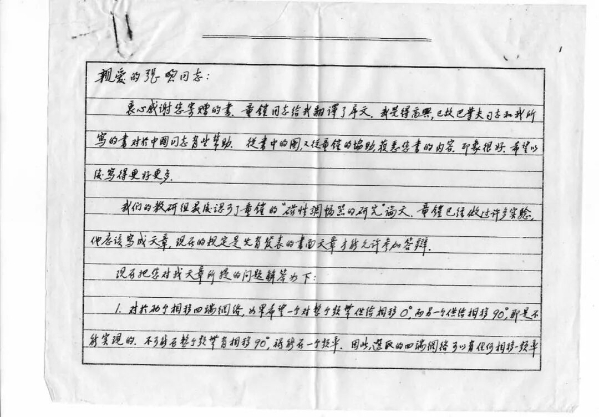 亲爱的张 同志:
衷心感谢您寄赠的书. 童铠同志给我翻译了序文. 我觉得高兴, 已故巴 夫同志和我所
写的书对於中国同志有些帮助. 从书中的图, 又从童铠的协助获悉您书的内容. 印象很好. 希望以
后写得更好更多.
我们的教研组最后 了童铠的"磁性调幅器的研究"论文. 童铠已经做过许多实验,
他应该写成文章, 现在的规定是先有发表的书面文章才能允许参加答辩.
现在把您对我文章所提的问题解答如下:
1. 对於两个相移四端网络, 如果希望一个对整个频带供给相移 0° 而另一个供给相移 90°, 那是不
能实现的. 不可能在整个频带有相移 90°, 稍 有一个频率. 因此, 选取的四端网络可以有任何相移—频率